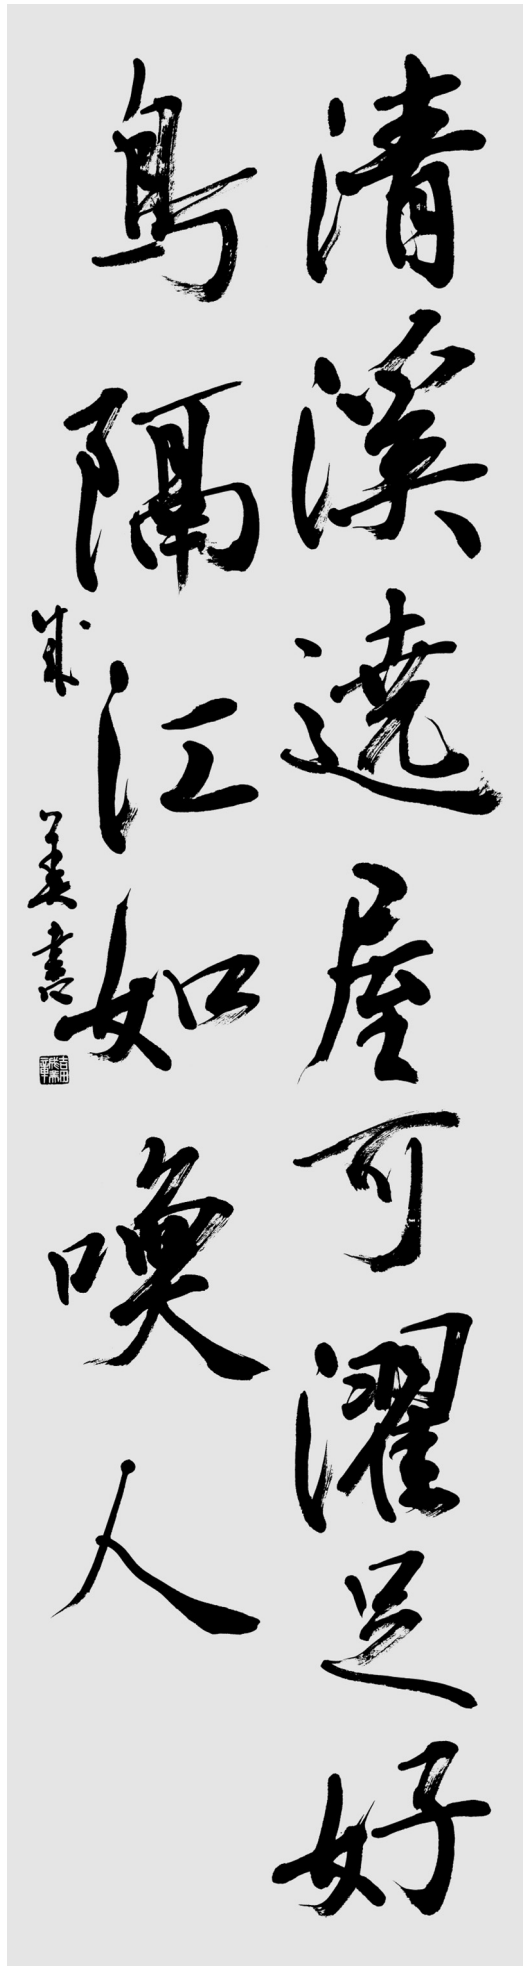 清溪遶屋可濯足好
鳥隔江如喚人
成美書